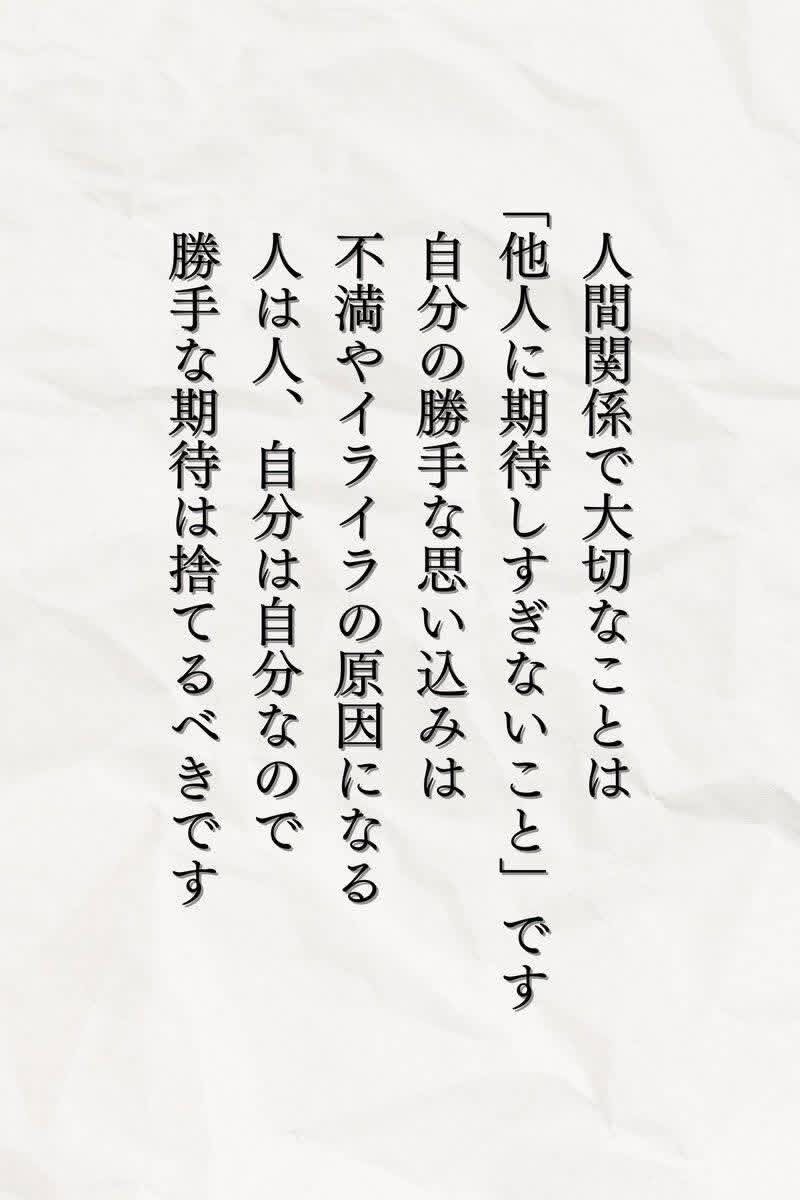 人間関係で大切なことは
「他人に期待しすぎないこと」です
自分の勝手な思い込みは
不満やイライラの原因になる
人は人、自分は自分なので
勝手な期待は捨てるべきです